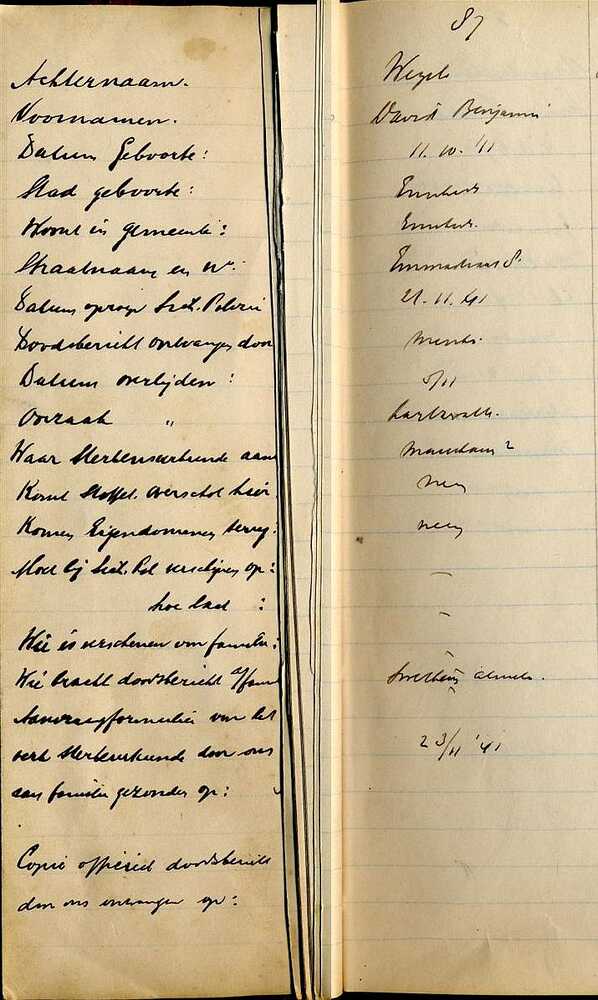 87
Achternaam.
Voornamen.
David Benjamin
Datum Geboorte:
11. 10. '11
Stad geboorte:
Enschede
Woont in gemeente:
Enschede.
Straatnaam en nr.
Emmastraat 8.
Datum oproep Sich. Polizei
21. 11. 41
Doodsbericht ontvangen door
Datum overlijden:
5/11
Oorzaak "
Waar Sterbensurkunde aan
Komt Stoffel. Overschot hier
neen
Komen Eigendommen terug:
neen
Moet bij Sich. Pol verschijnen op:
—
hoe laat :
-
Wie is verschenen van familie:
-
Wie bracht doodsbericht a/fam
Aanvraagformulier van het
vert Sterbeurkunde door ons
23/11 '41
aan familie gezonden op:
Copie officieel doodsbericht
door ons ontvangen op: